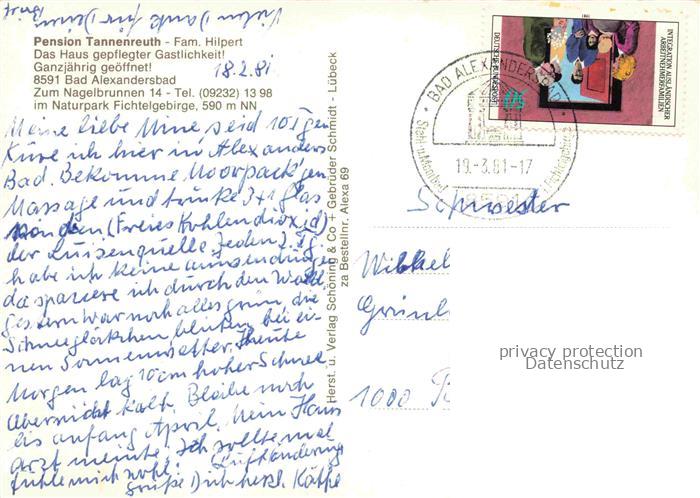 Vielen Dank für Deinen
Brief
Pension Tannenreuth - Fam. Hilpert
Das Haus gepflegter Gastlichkeit!
Ganzjährig geöffnet!
18.2.81
8591 Bad Alexandersbad
Zum Nagelbrunnen 14 - Tel. (09232) 13 98
im Naturpark Fichtelgebirge, 590 m NN
Meine liebe 10
Kure ich hier in Alexanders
Bad. Bekomme Moorpack
Massage und trinke 3x1 Glas
(Freies Kohlendioxid)
der Luisenquelle. Jeden 2. Tg.
habe ich keine anwendungen
da spaziere ich durch den Wald.
gestern war noch alles grün, die
Schneeglöckchen blühen bei ei
nen Sonnenwetter. Heute
Morgen lag 10 cm hoher Schnee
aber nicht kalt. Bleibe noch
bis anfang April. Mein Haus
arzt meinte, ich sollte mal
Luftänderung
fühle mich wohl.
Grüße Dich herzl. Käthe
Herst. u. Verlag Schöning & Co + Gebrüder Schmidt - Lübeck
za Bestellnr. Alexa 69
INTEGRATION AUSLÄNDISCHER
ARBEITNEHMERFAMILIEN
DEUTSCHE BUNDESPOST
1981
BAD ALEXANDERSBAD
19.-3.81-17
Schwester
1000
privacy protection
Datenschutz